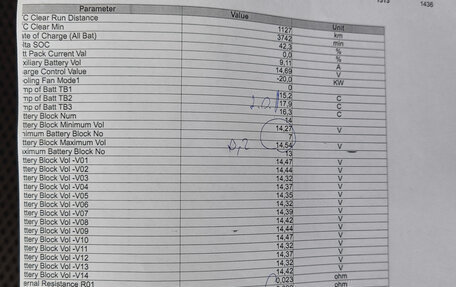 1436
Parameter Value Unit
C Clear Run Distance 1127 km
C Clear Min 3742 min
ate of Charge (All Bat) 42,3 %
lta SOC 0,0 %
tt Pack Current Val 9,11 A
xiliary Battery Vol 14,69 V
arge Control Value -20,0 KW
oling Fan Mode1 0
mp of Batt TB1 15,2 C
mp of Batt TB2 17,9 C
mp of Batt TB3 16,3 C
ttery Block Num 14
ttery Block Minimum Vol 14,27 V
nimum Battery Block No 7
ttery Block Maximum Vol 14,54 V
aximum Battery Block No 13
0,2
ttery Block Vol -V01 14,47 V
ttery Block Vol -V02 14,44 V
ttery Block Vol -V03 14,32 V
ttery Block Vol -V04 14,37 V
ttery Block Vol -V05 14,35 V
ttery Block Vol -V06 14,32 V
ttery Block Vol -V07 14,39 V
ttery Block Vol -V08 14,42 V
ttery Block Vol -V09 14,44 V
ttery Block Vol -V10 14,47 V
ttery Block Vol -V11 14,32 V
ttery Block Vol -V12 14,32 V
ttery Block Vol -V13 14,37 V
ttery Block Vol -V14 14,42 V
ernal Resistance R01 0,023 ohm
ohm